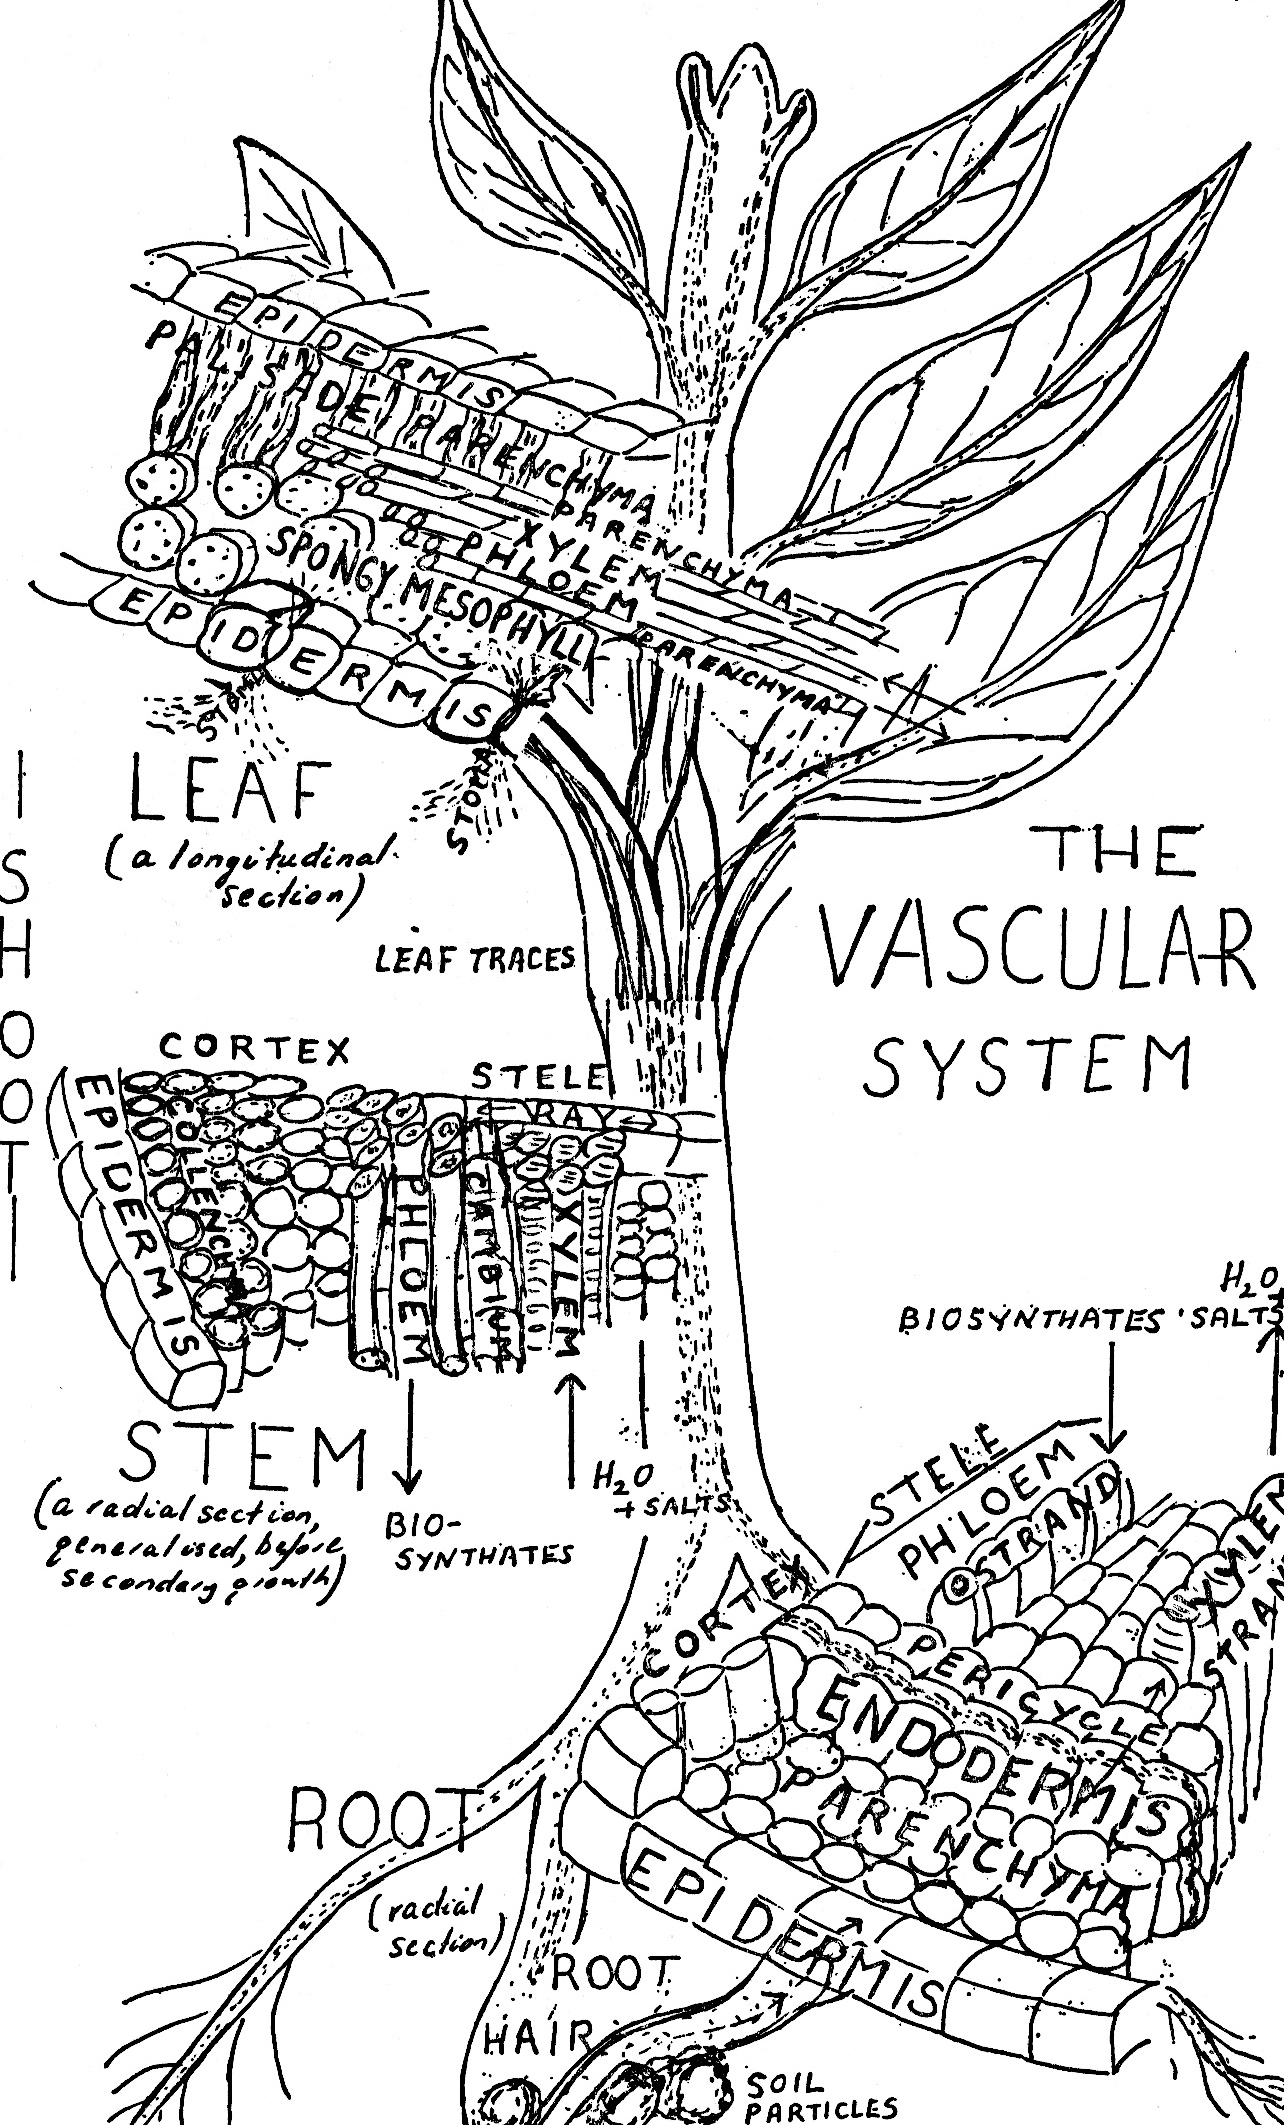 EPIDERMIS
PALISADE PARENCHYMA
PARENCHYMA
XYLEM
PHLOEM
SPONGY MESOPHYLL
PARENCHYMA
EPIDERMIS
STOMA
STOMA
LEAF
(a longitudinal
section)
SHOOT
THE
VASCULAR
SYSTEM
LEAF TRACES
CORTEX
STELE
RAY
EPIDERMIS
PHLOEM
CAMBIUM
XYLEM
STEM
(a radial section,
generalised, before
secondary growth)
BIO-
SYNTHATES
H2O
+ SALTS
H2O
BIOSYNTHATES
SALTS
STELE
PHLOEM
STRAND
XYLEM
CORTEX
PERICYCLE
ENDODERMIS
PARENCHYMA
EPIDERMIS
ROOT
(radial
section)
ROOT
HAIR
SOIL
PARTICLES